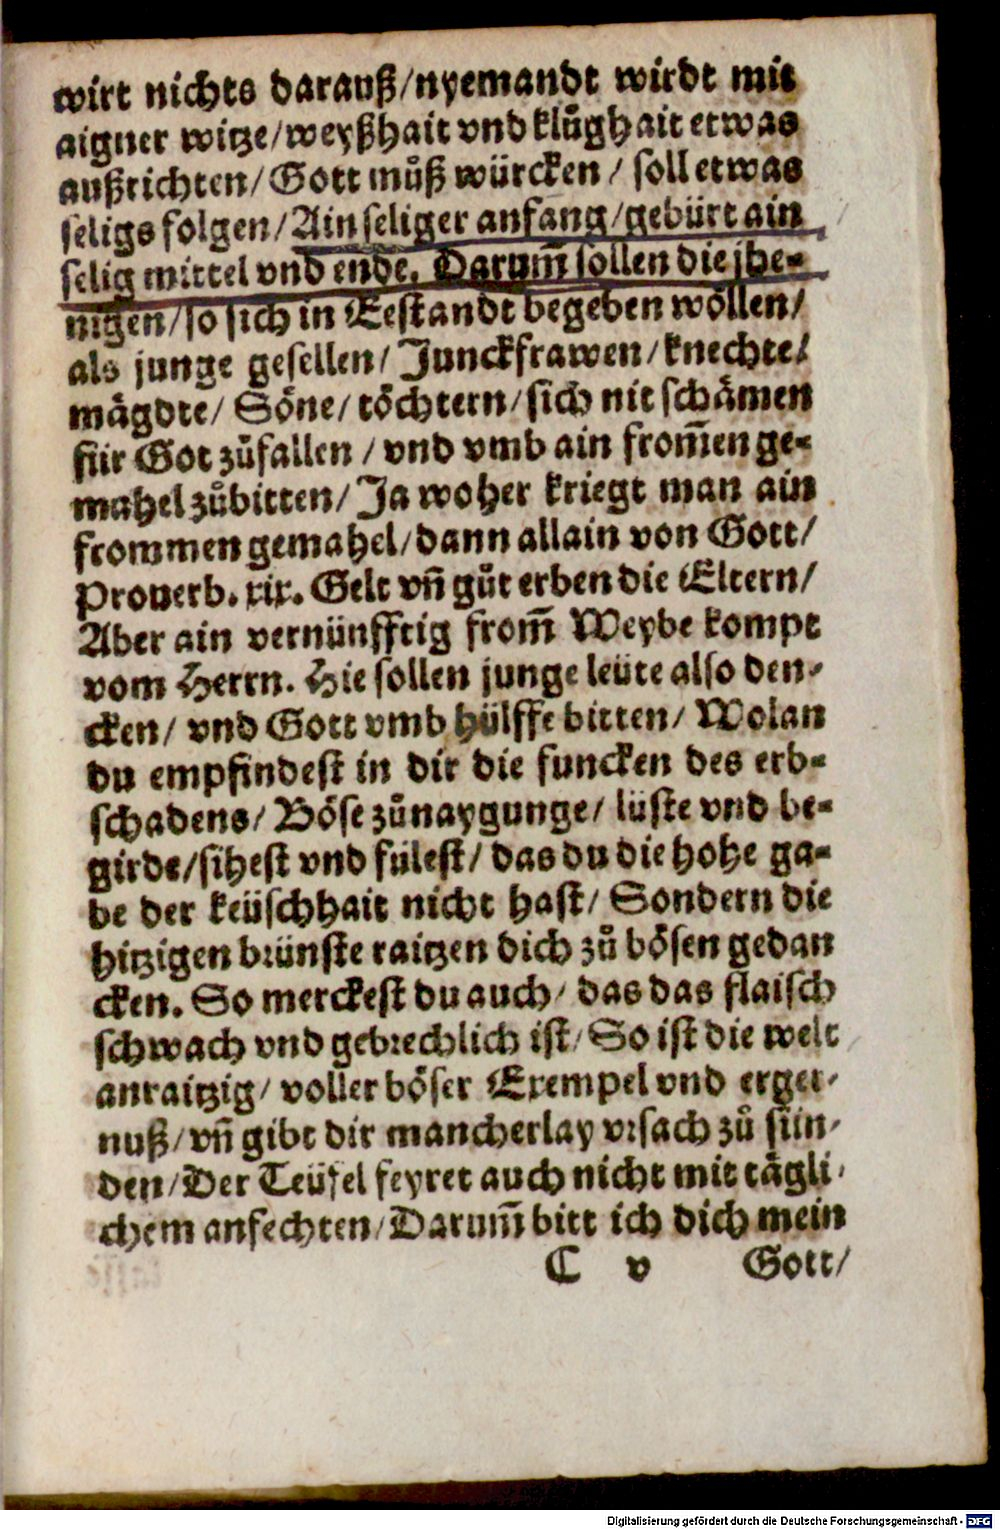 wirt nichts darauß/nyemandt wirdt mit
aigner witze/weyßhait vnd klůghait etwas
außrichten/ Gott můß würcken / soll etwas
seligs folgen/ Ain seliger anfang/gebürt ain
selig mittel vnd ende. Darum̃ sollen die jhe-
nigen/so sich in Eestandt begeben wöllen/
als junge gesellen/ Junckfrawen/knechte/
mägdte/ Söne/töchtern/sich nit schämen
für Got zůfallen / vnd vmb ain from̃en ge-
mahel zůbitten/ Ja woher kriegt man ain
frommen gemahel/dann allain von Gott/
Prouerb. xix. Gelt vñ gůt erben die Eltern/
Aber ain vernünfftig from̃ Weybe kompt
vom Herrn. Hie sollen junge leüte also den-
cken/ vnd Gott vmb hülffe bitten/ Wolan
du empfindest in dir die funcken des erb-
schadens/ Böse zůnaygunge/ lüste vnd be-
girde/sihest vnd fülest/ das du die hohe ga-
be der keüschhait nicht hast/ Sondern die
hitzigen brünste raitzen dich zů bösen gedan
cken. So merckest du auch/ das das flaisch
schwach vnd gebrechlich ist/ So ist die welt
anraitzig/ voller böser Exempel vnd erger-
nuß/vñ gibt dir mancherlay vrsach zů sün-
den/Der Teüfel feyret auch nicht mit tägli-
chem anfechten/Darum̃ bitt ich dich mein
C v Gott/
Digitalisierung gefördert durch die Deutsche Forschungsgemeinschaft - DFG